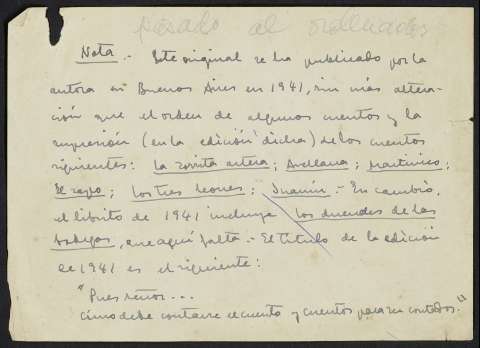 Pasado al ordenador
Nota.- Este original se ha publicado por la
autora en Buenos Aires en 1941, sin más altera-
ción que el orden de algunos cuentos y la
supresión (en la edición dicha) de los cuentos
siguientes: La zorrita artera; Avellana; Martinico;
El sapo; Los tres leones; Juanín.- En cambio,
el librito de 1941 incluye Los duendes de las
bodegas, que aquí falta.- El título de la edición
de 1941 es el siguiente:
"Pues señor...
cómo debe contarse el cuento y cuentos para ser contados."